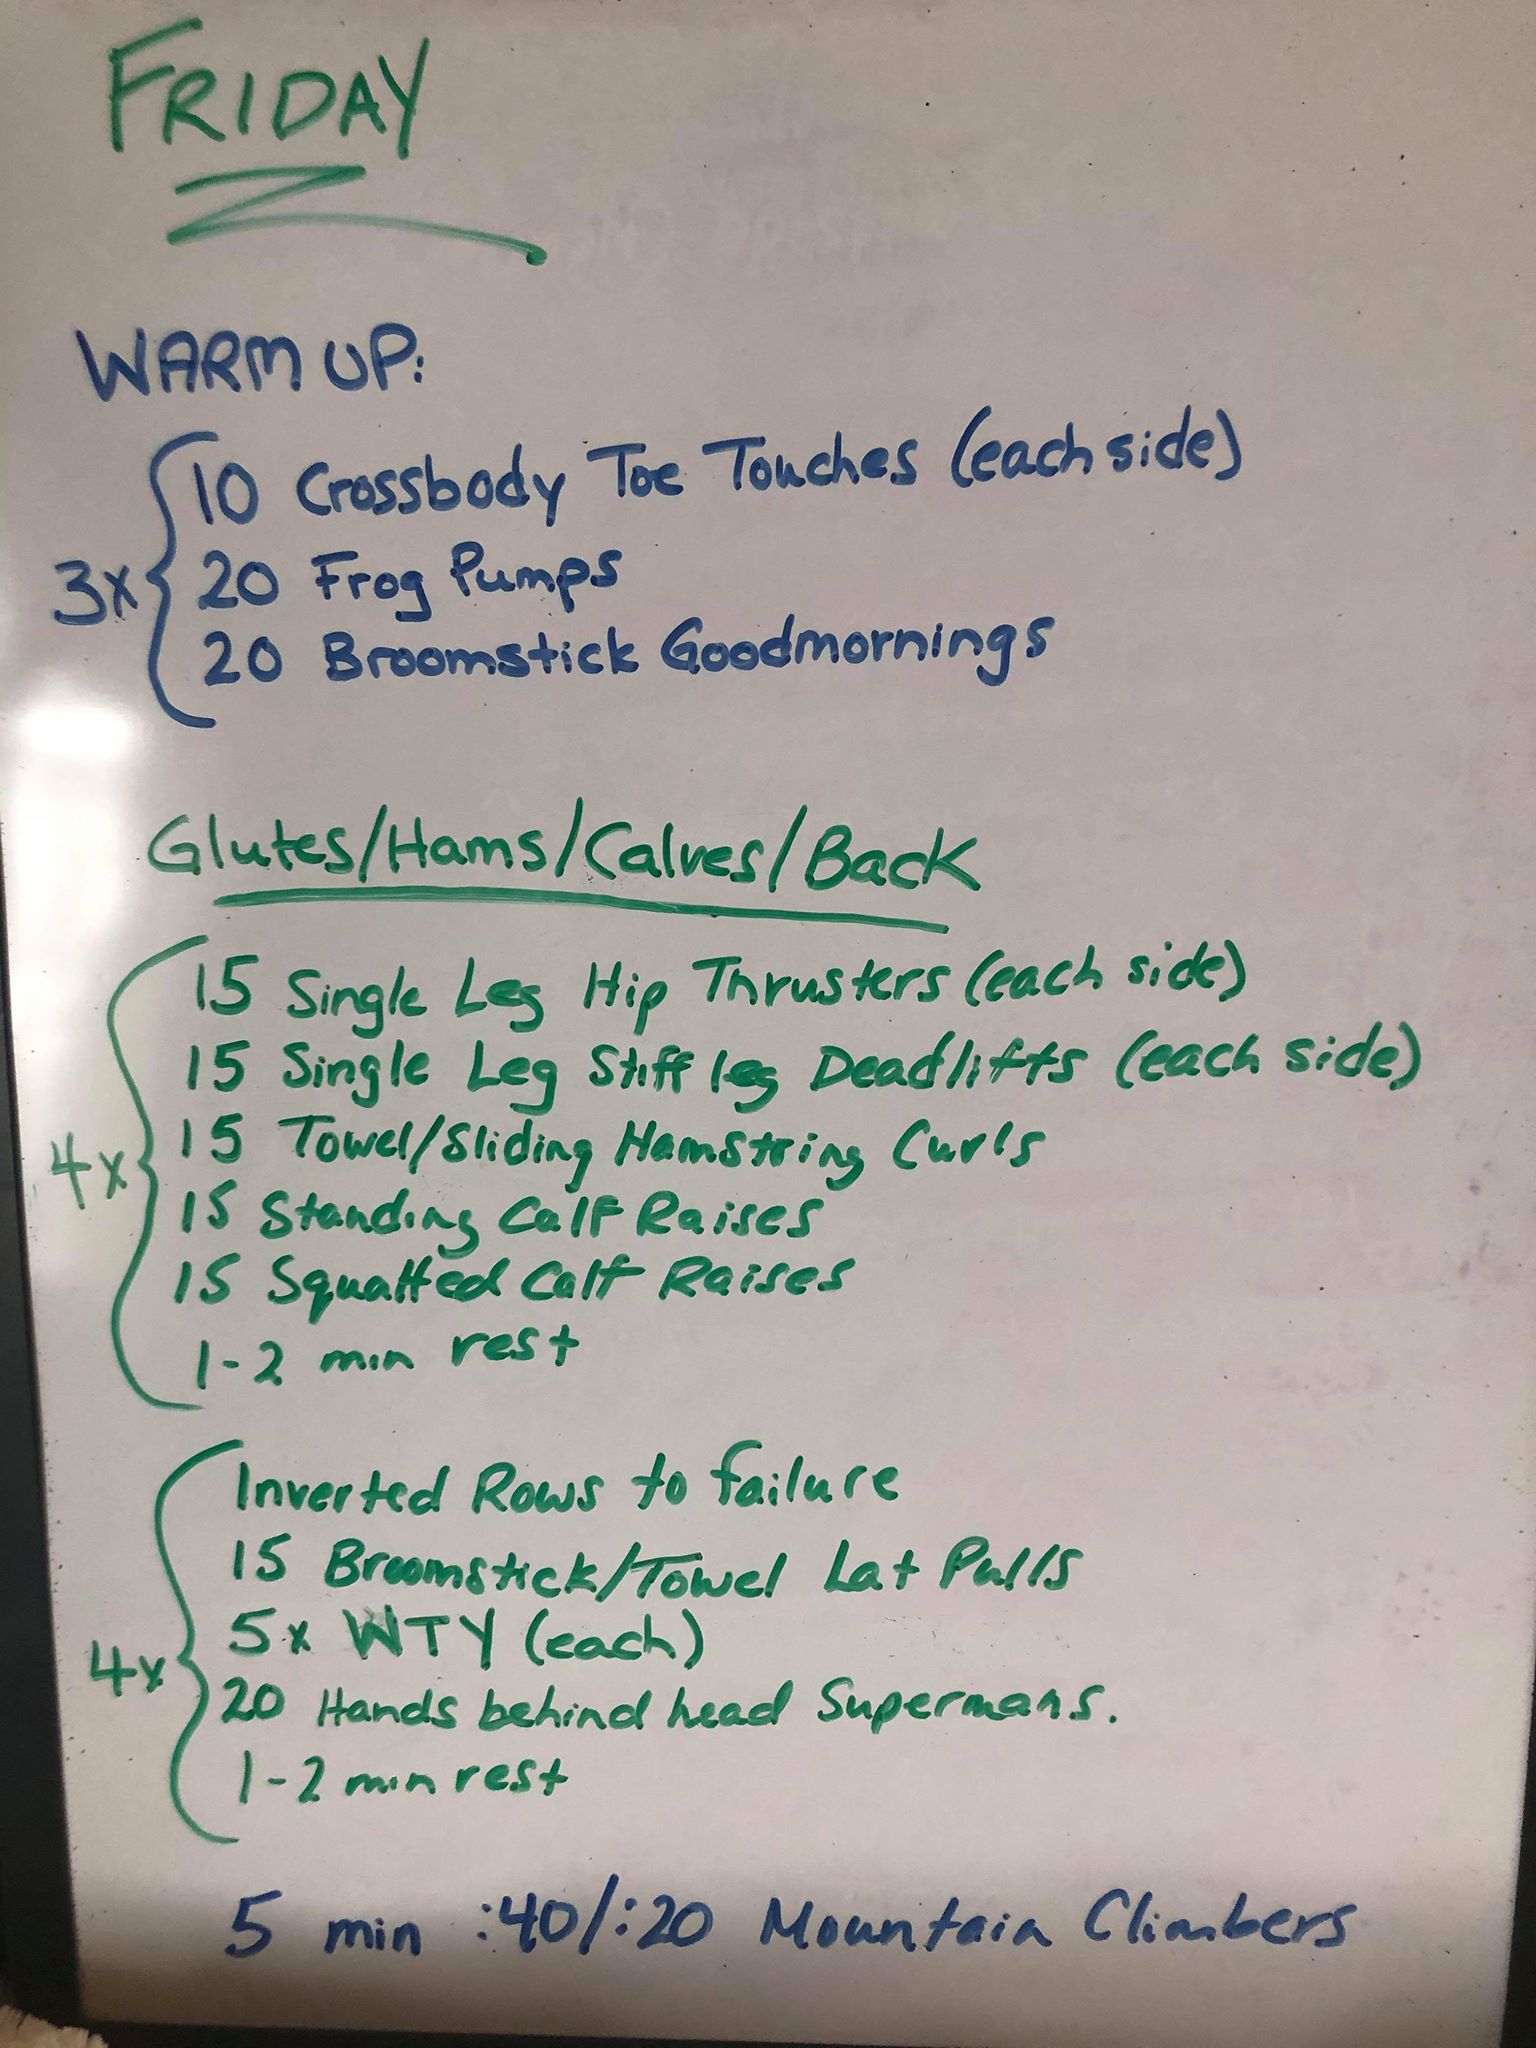 FRIDAY
WARM UP:
3x
10 Crossbody Toe Touches (each side)
20 Frog Pumps
20 Broomstick Goodmornings
Glutes/Hams/Calves/Back
4x
15 Single Leg Hip Thrusters (each side)
15 Single Leg Stiff leg Deadlifts (each side)
15 Towel/Sliding Hamstring Curls
15 Standing Calf Raises
15 Squatted Calf Raises
1-2 min rest
4x
Inverted Rows to failure
15 Broomstick/Towel Lat Pulls
5x WTY (each)
20 Hands behind head Supermans.
1-2 min rest
5 min :40/:20 Mountain Climbers